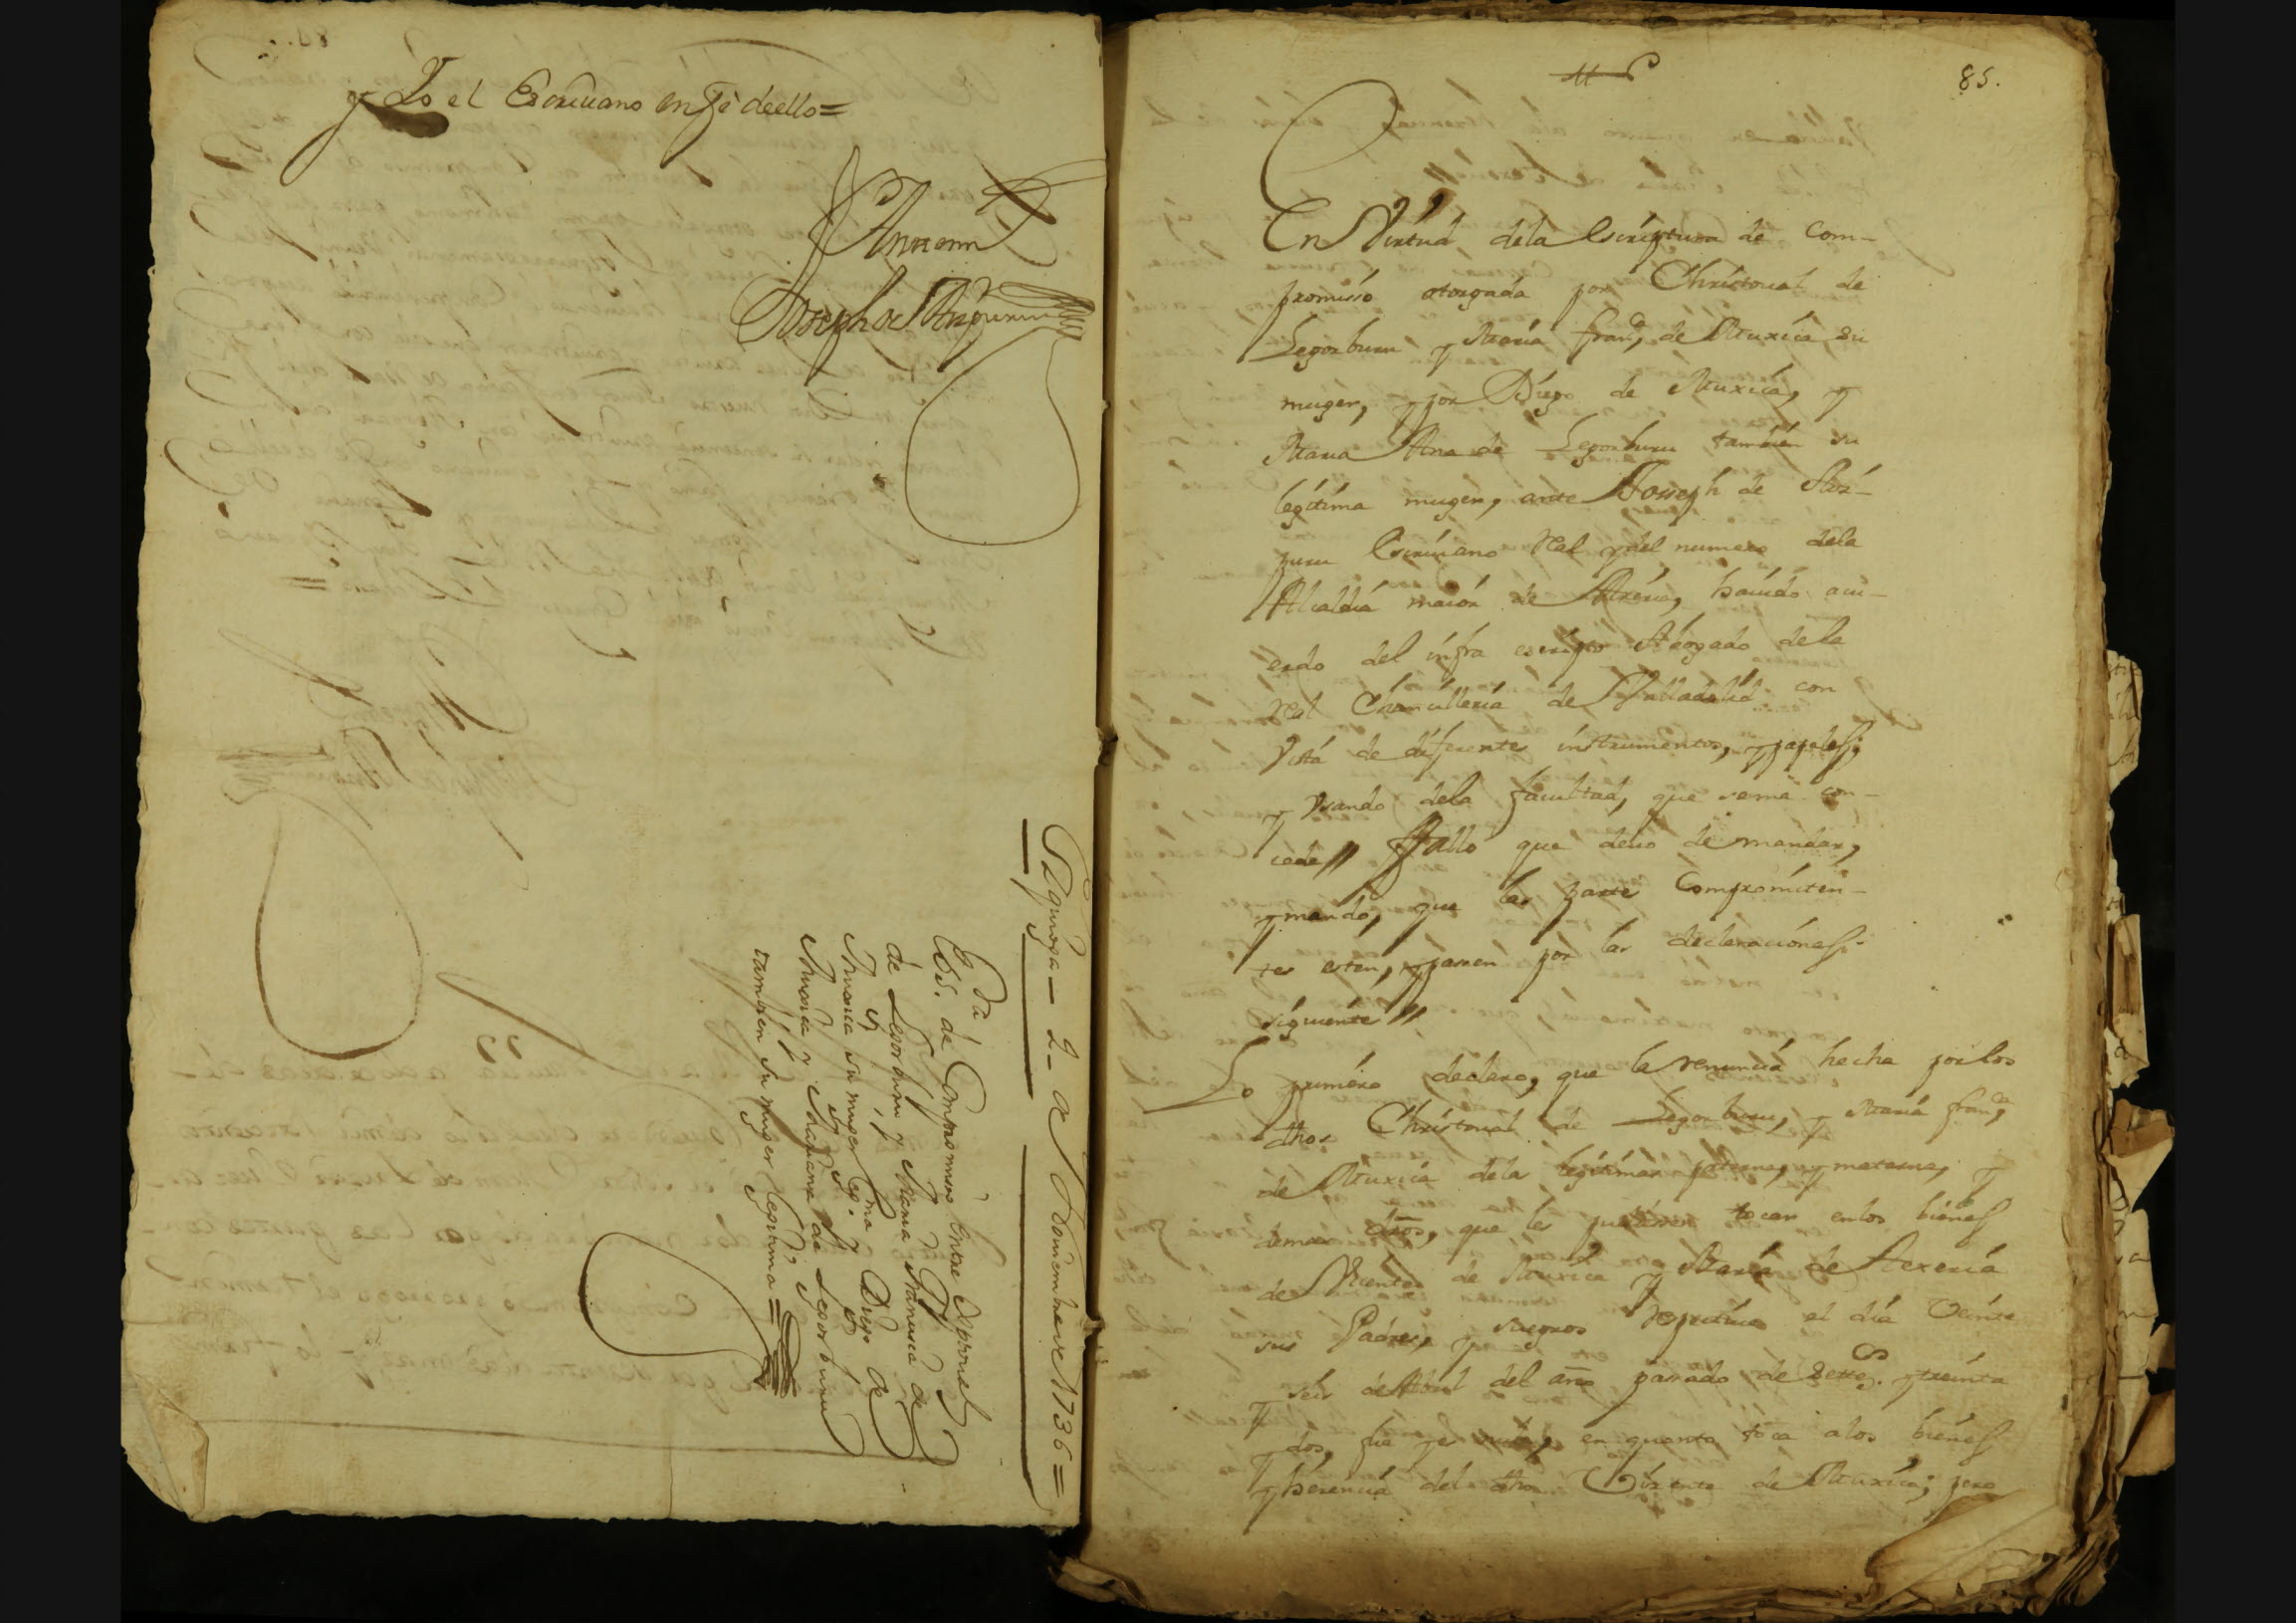 y Yo el Escriuano en fe de ello=
Ante mi
Joseph de Aranguren
Eguinoa - 2 - de Nouiembre de 1736=
Ess.ra de Compromiso entre Xptoual
de Legorburu y Maria Francisca de
Muxica su muger Leg.ma y Diego de
Muxica y Mariana de Legorburu
tambien su muger Legitima=
85.
En Virtud dela Escriptura de Com-
promisso otorgada por Christoual de
Legorburu y Maria fran.ca de Muxica su
muger, y por Diego de Muxica, y
Maria Ana de Legorburu tambien su
legitima muger, ante Joseph de
Escriuano Real y del numero dela
Alcaldia maior de hauido acu-
erdo del infra escripto Abogado dela
Real Chancilleria de Valladolid con
Vista de diferentes instrumentos, y papeles;
y Vsando dela facultad, que seme con-
cede // Fallo que deuo de mandar,
y mando, que las partes Compromiten-
tes esten, y passen por las declaraciones
siguientes //
Lo primero declaro, que la renuncia hecha por los
dhos Christoual de Legorburu, y Maria fran.ca
de Muxica dela legitimas paterna, y materna, y
demas dros, que les pudiesen tocar en los bienes
de Vicente de Muxica y Maria de
sus Padres, y suegros respectiue el dia Veinte
y seis de Abril del año passado de Sette.s y treinta
y dos, fue y es nula, en quanto toca a los bienes
y herencia del dho Vizente de Muxica; pero